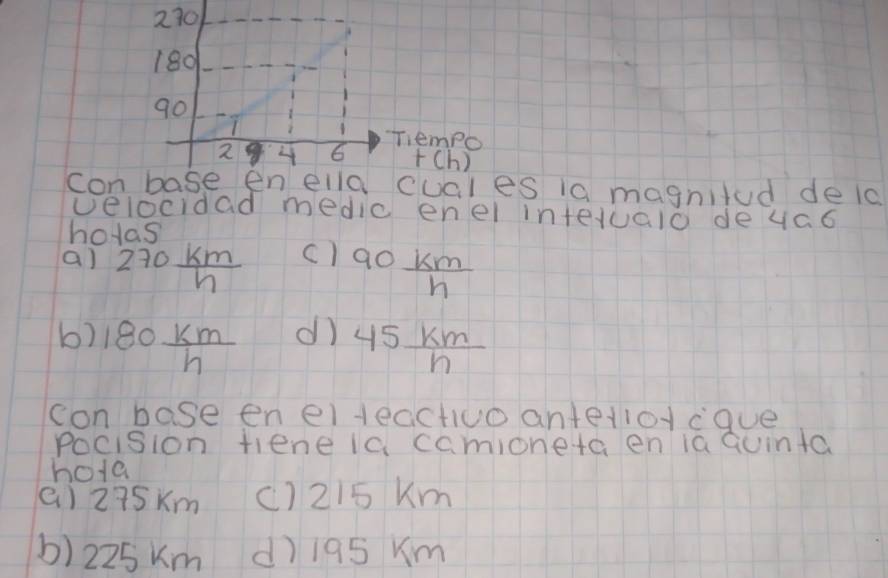 270
180
90
2 4 6
Tiempo
t(h)
con base en ella cual es la magnitud de la
velocidad medic en el intervalo de 4a6
horas
a) 270 km/h c) 90 km/h
b) 180 km/h d) 45 km/h
con base en el reactivo anterior ¿que
pocision tiene la camioneta en la quinta
hora
a) 275 Km c) 215 Km
b) 225 Km d) 195 Km